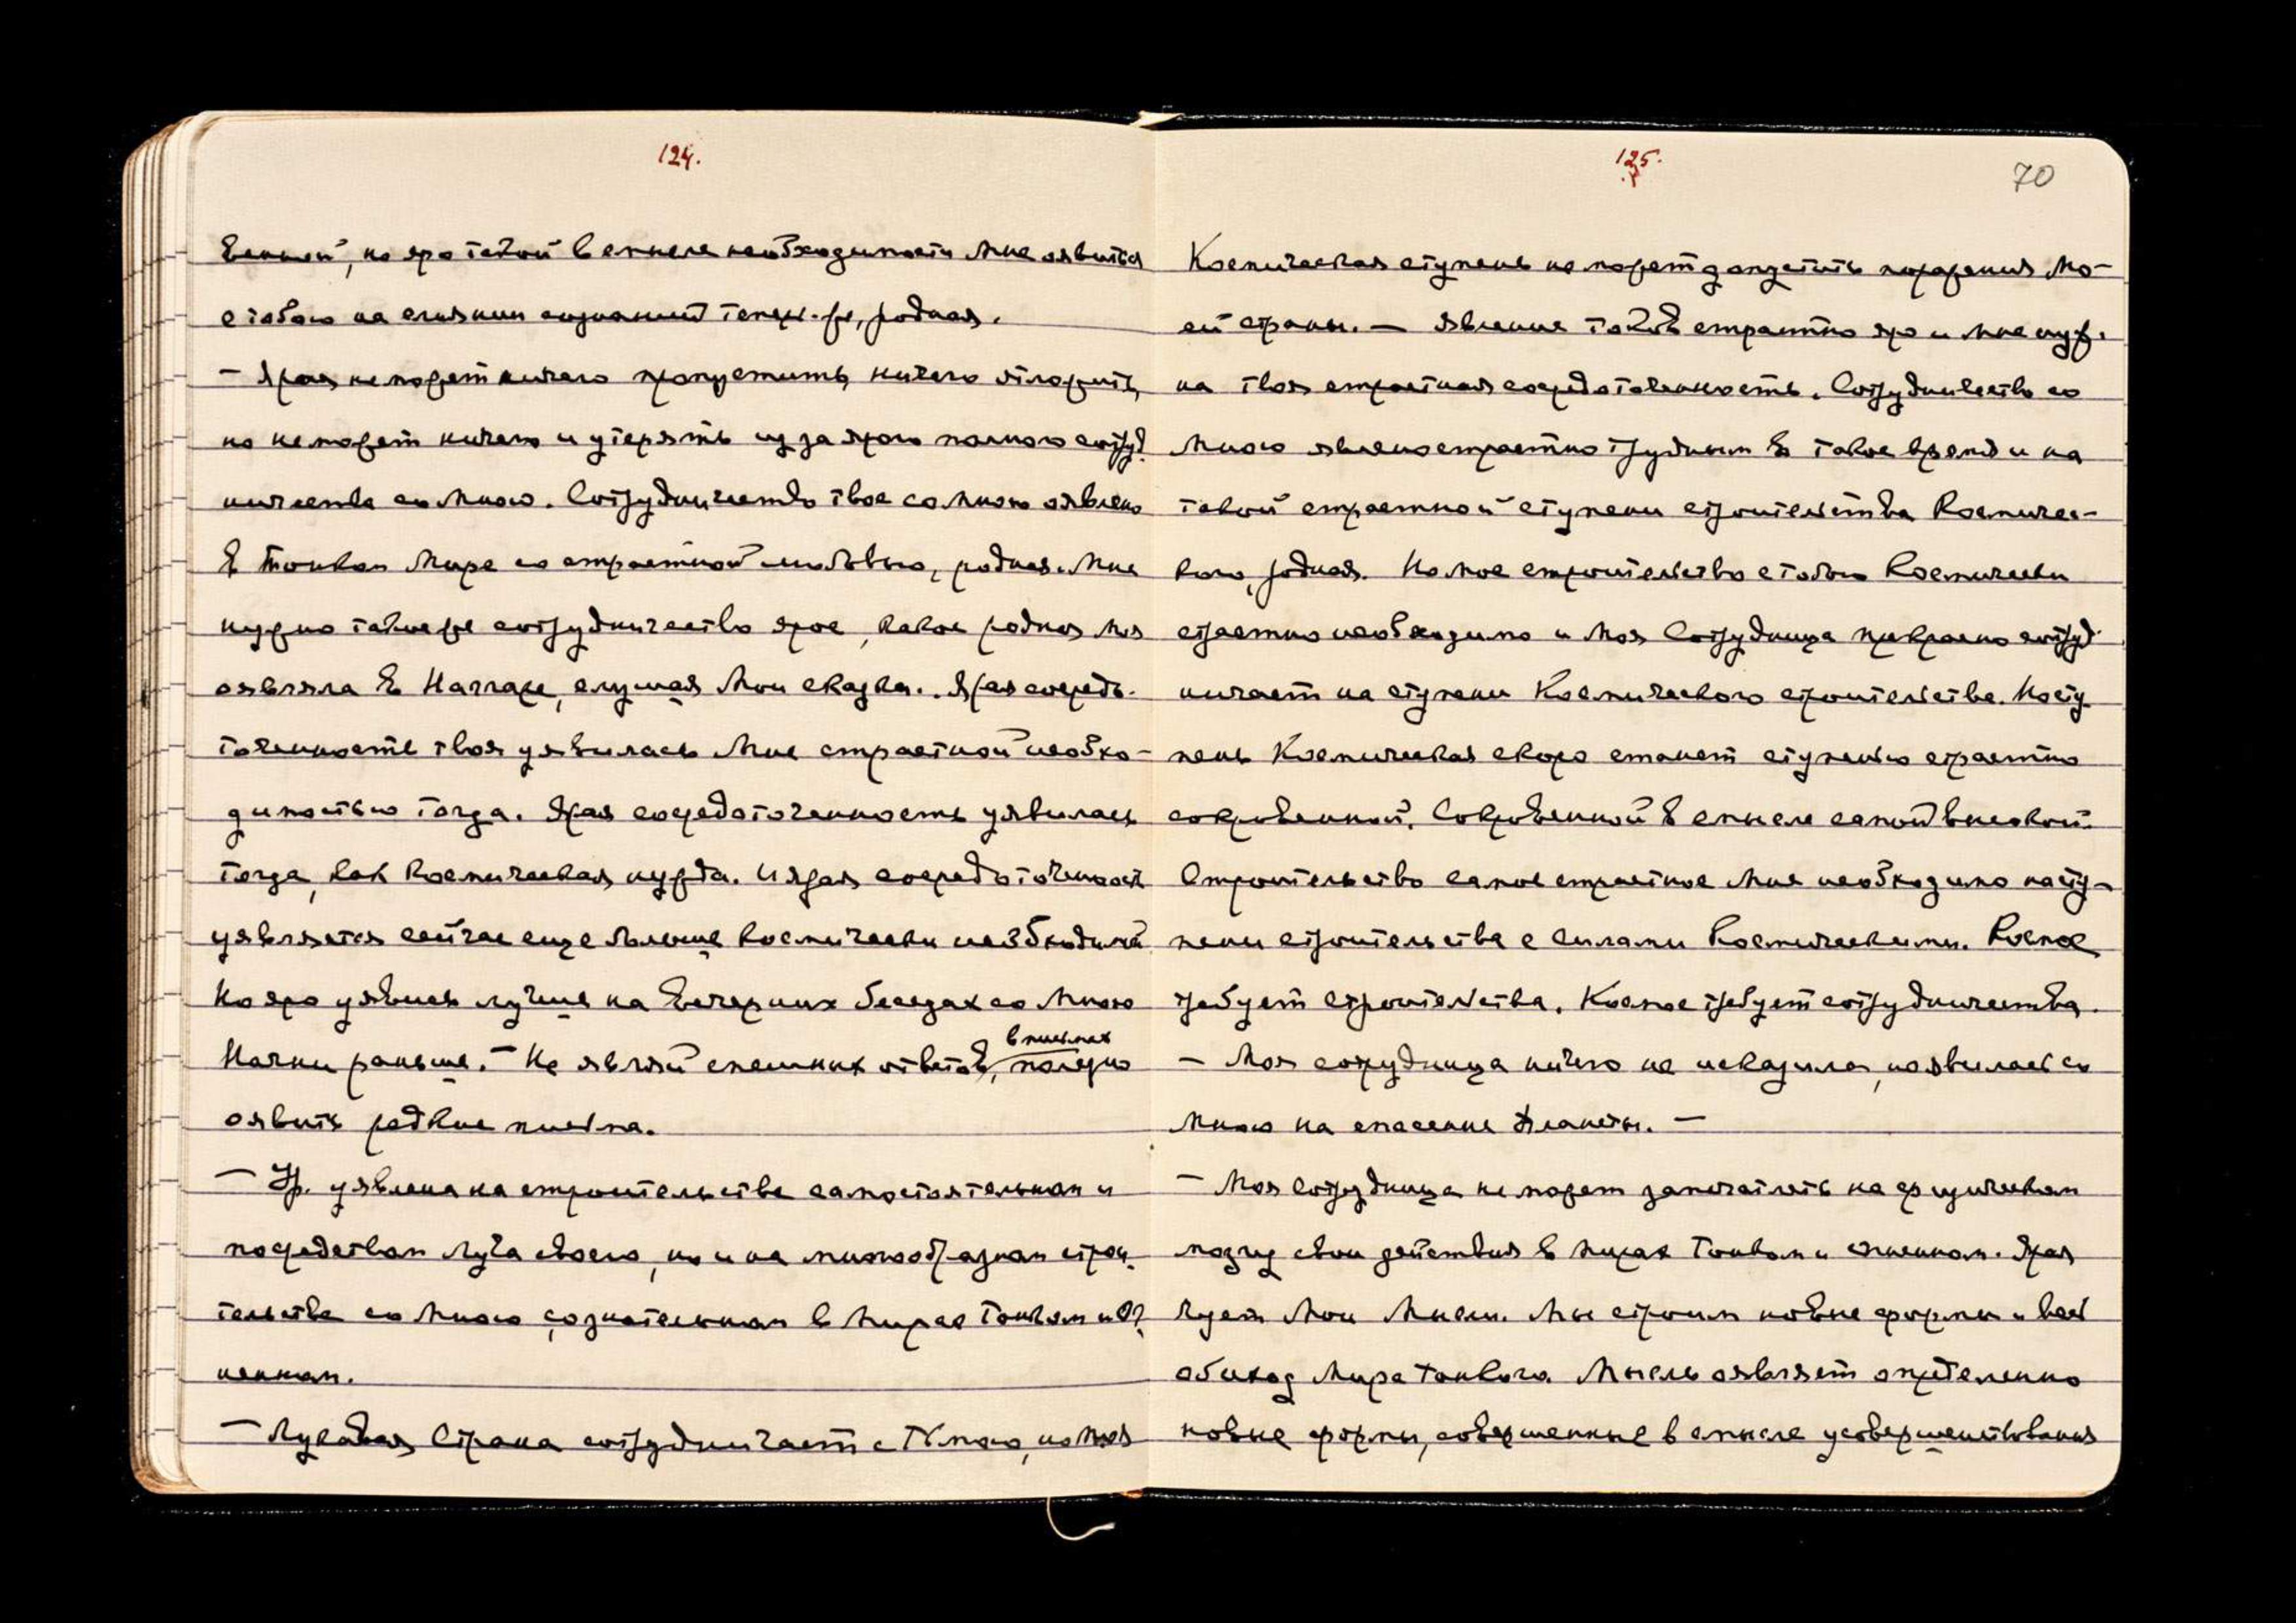 124.
венной, но яро такой в смысле необходимости Мне оявиться
с тобою на слиянии сознаний теперь-же, родная.
— Ярая не может ничего пропустить, ничего отложить,
но не может ничего и утерять из за ярого полного сотруд-
ничества со Мною. Сотрудничество твое со Мною оявлено
в Тонком Мире со страстной любовью, родная. Мне
нужно такое же сотрудничество ярое, какое родная Моя
оявляла в Наггаре, слушая Мои сказки. Ярая сосредо-
точенность твоя уявилась Мне страстной необхо-
димостью тогда. Ярая сосредоточенность уявилась
тогда, как Космическая нужда. И ярая сосредоточенность
уявляется сейчас еще больше Космически необходимой.
Но яро уявись лучше на Вечерних беседах со Мною
Начни раньше. — Не являй спешных ответов в письмах, полезно
оявить редкие письма.
— Ур. уявлена на строительстве самостоятельном и
посредством Луча своего, но и на многообразном строи-
тельстве со Мною сознательном в Мирах Тонком и Ог-
ненном.
— Луковая Страна сотрудничает с Тобою, но Моя
125.
70
Космическая ступень не может допустить поражения Мо-
ей страны. — Явление таков страстно яро и Мне нуж-
на твоя страстная сосредоточенность. Сотрудничество со
Мною явлено страстно трудным в такое время и на
такой страстной ступени строительства Космичес-
кого, родная. Но мое строительство с тобою Космически
страстно необходимо и Моя Сотрудница прекрасно сотруд-
ничает на ступени Космического строительства. Но сту-
пень Космическая скоро станет ступенью страстно
сокровенной. Сокровенной в смысле самой высокой
Строительство самое страстное Мне необходимо на сту-
пени строительства с силами Космическими. Космос
требует строительства. Космос требует сотрудничества.
— Моя сотрудница ничего не исказила, но явилась со
Мною на спасение Планеты. —
— Моя сотрудница не может запечатлеть на физическом
мозгу свои действия в мирах Тонком и Огненном. Ярая
чует Мои Мысли. Мы строим новые формы и весь
обиход Мира Тонкого. Мысль оявляет определенно
новые формы, совершенные в смысле усовершенствования